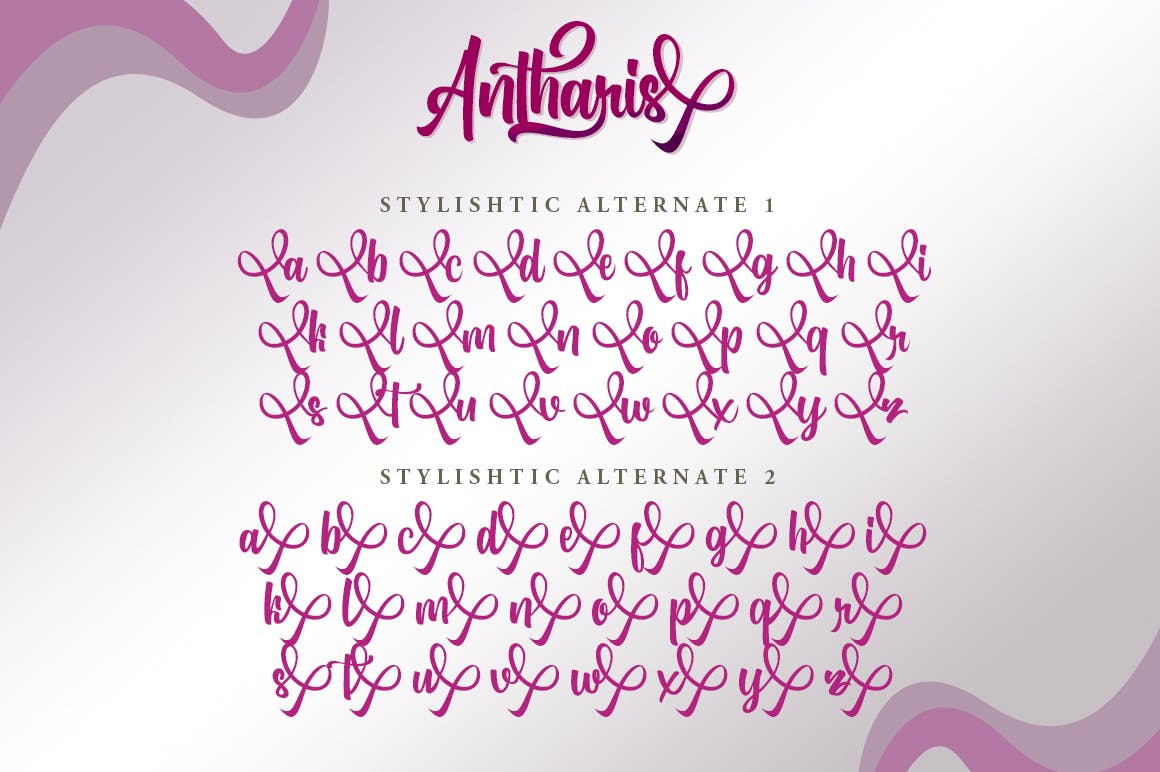 Antharis
STYLISHTIC ALTERNATE 1
a b c d e f g h i
k l m n o p q r
s t u v w x y z
STYLISHTIC ALTERNATE 2
a b c d e f g h i
k l m n o p q r
s t u v w x y z